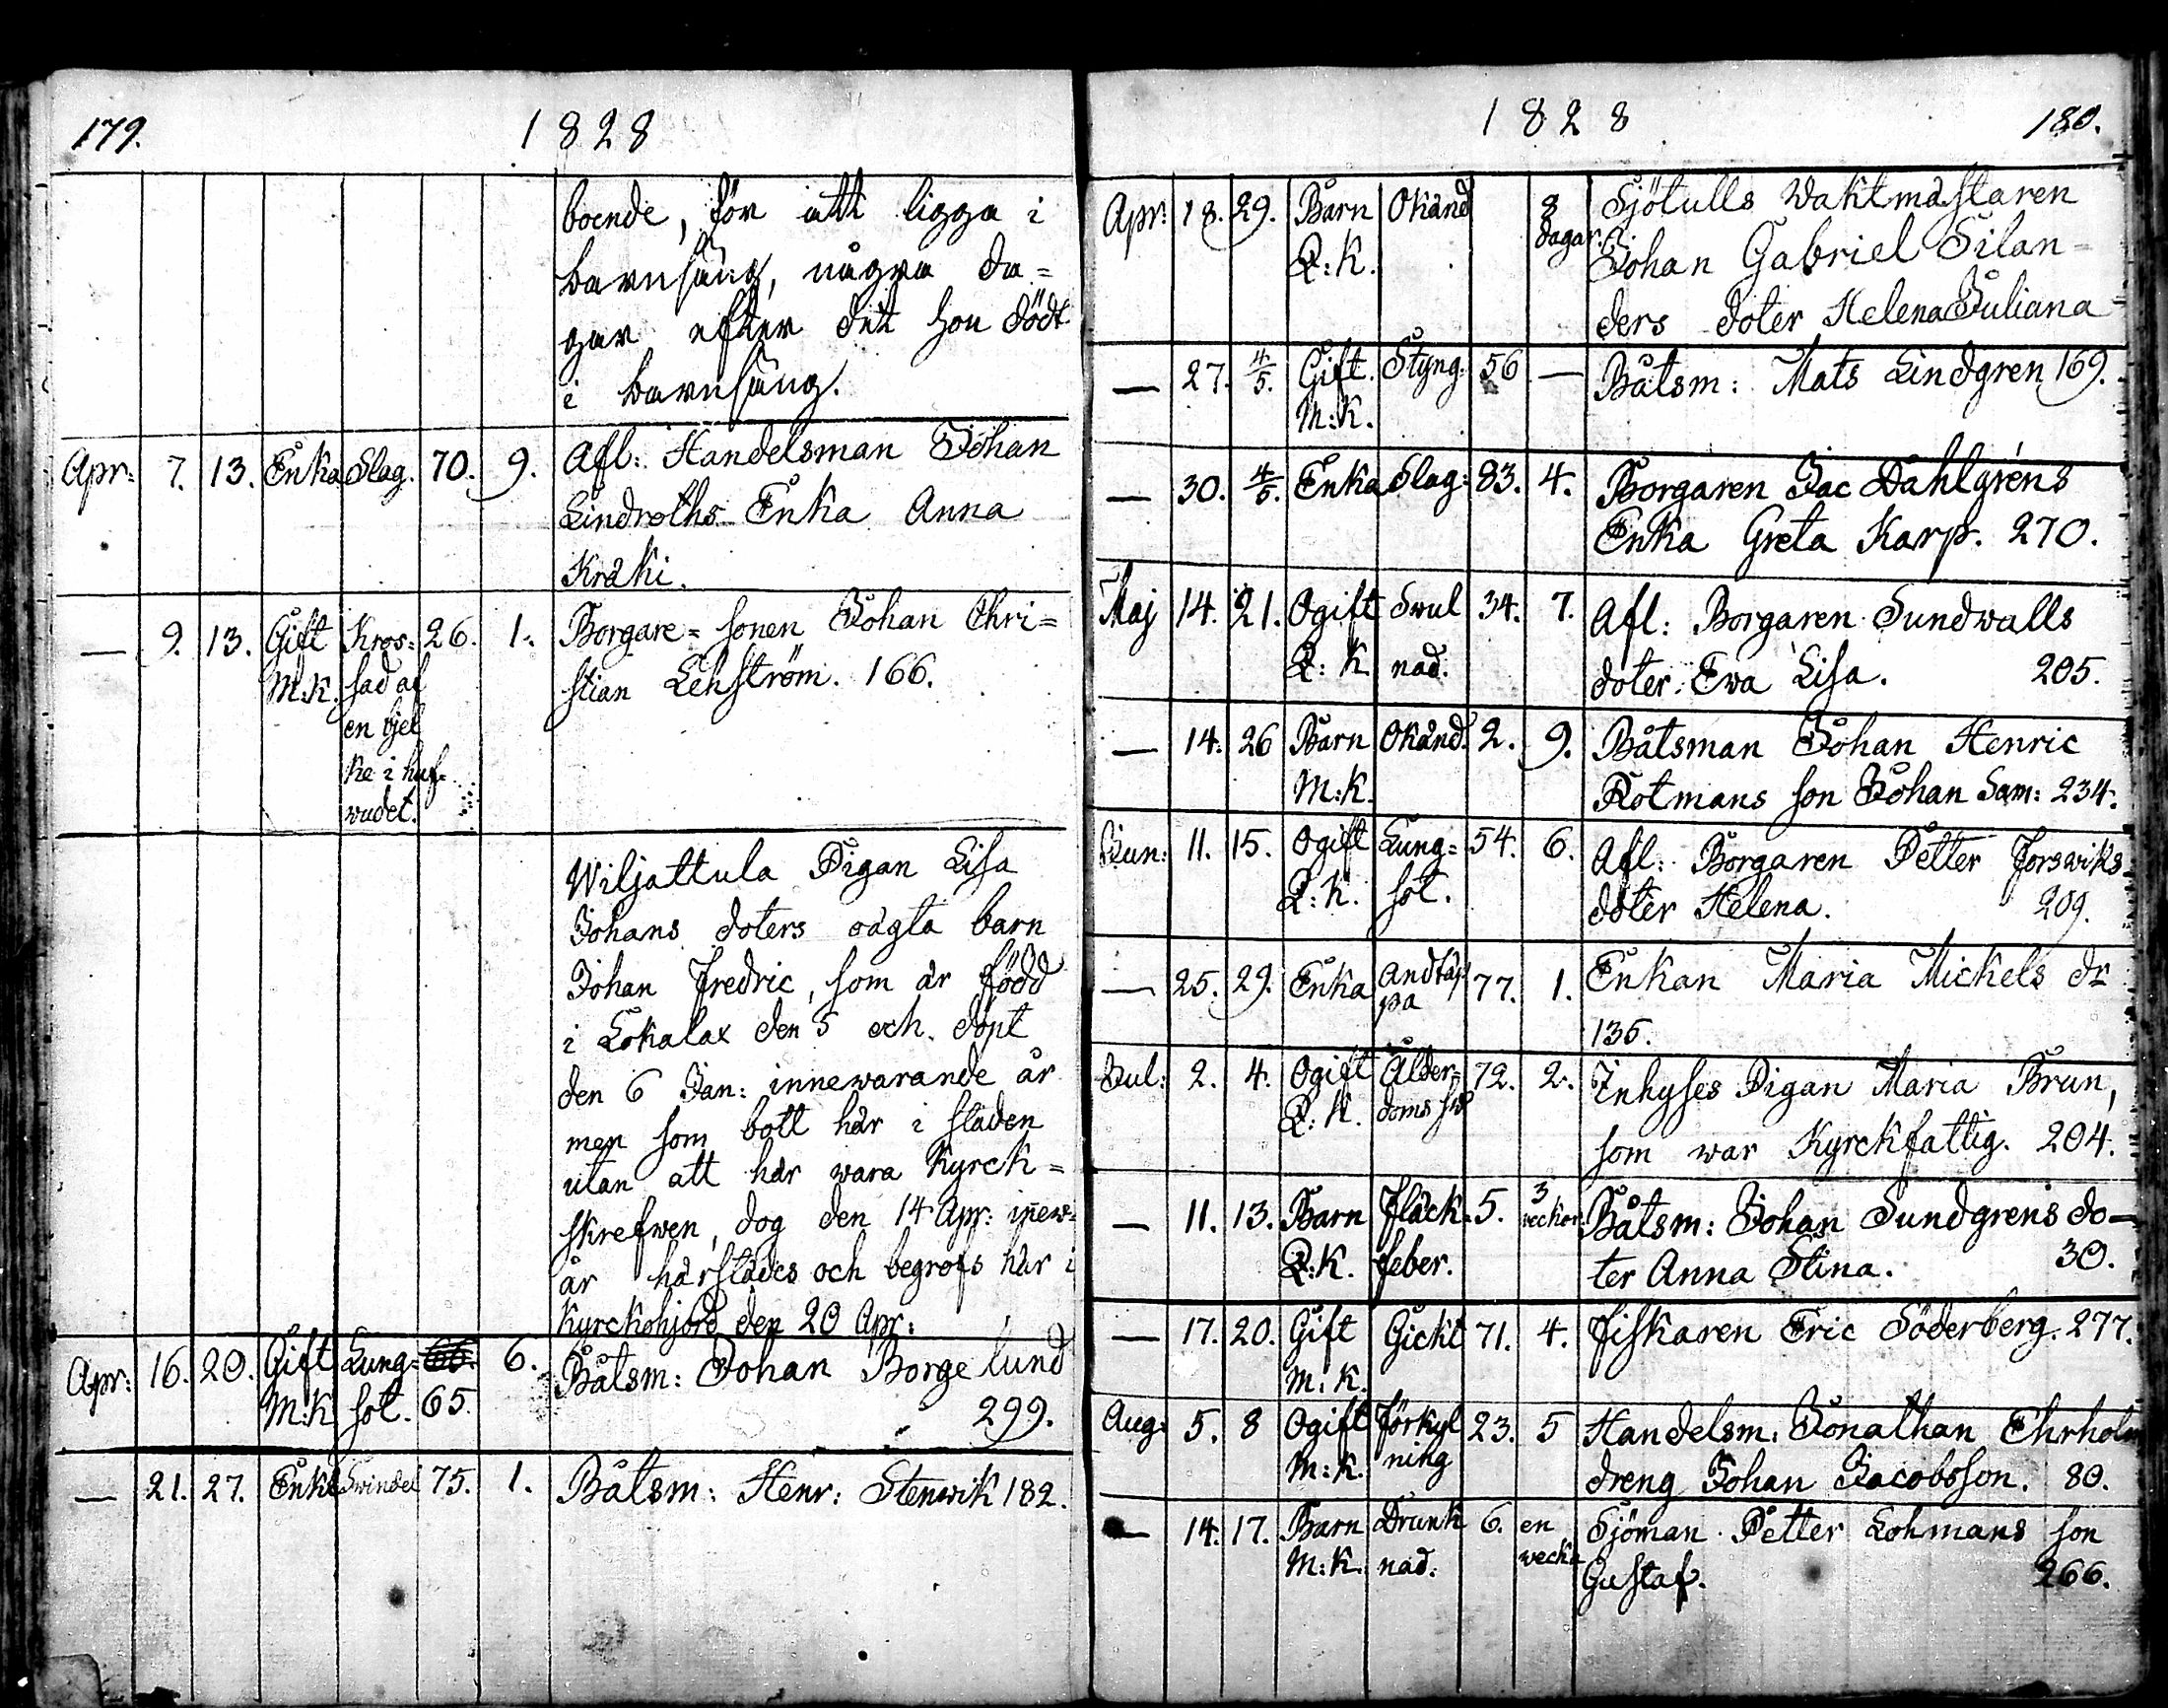 179.
1828
boende, för att ligga i
barnsäng, några da=
gar efter det hon födt
i barnsäng.
Apr: 7. 13. Enka Slag. 70. 9. Afl: Handelsman Johan
Lindroths Enka Anna
Kraki.
— 9. 13. Gift Kros= 26. 1. Borgare= sonen Johan Chri=
M:K. sad af stian Lehström. 166.
en bjel
ke i huf=
wudet.
Wiljattula Pigan Lisa
Johans doters oägta barn
Johan Fredric, som är född
i Lokalax den 5 och döpt
den 6 Jan: innewarande år
men som bott här i staden
utan att här wara Kyrck=
skrefwen, dog den 14 Apr: inew:
år härstädes och begrofs här i
Kyrckohjord den 20 Apr:
Apr: 16. 20. Gift Lung= 66. 6. Båtsm: Johan Borgelund
M:K sot. 65. 299.
— 21. 27. Enkl Swindel 75. 1. Båtsm: Henr: Stenwik 182.
1828
180.
Apr: 18. 29. Barn Okänd 8 Sjötulls Waktmästaren
Q:K. dagar. Johan Gabriel Silan=
ders doter Helena Juliana
— 27. 4/5. Gift. Styng: 56 — Båtsm: Mats Lindgren 169.
M:K.
— 30. 4/5. Enka Slag: 83. 4. Borgaren Jac Dahlgréns
Enka Greta Karp. 270.
Maj 14. 21. Ogift Swul 34. 7. Afl: Borgaren Sundwalls
Q:K. nad. doter: Ewa Lisa. 205.
— 14. 26 Barn Okänd. 2. 9. Båtsman Johan Henric
M:K. Rotmans son Johan Sam: 234.
Jun: 11. 15. Ogift Lung= 54. 6. Afl: Borgaren Petter Forswiks
Q:K. sot. doter Helena. 209.
— 25. 29. Enka Andtäp 77. 1. Enkan Maria Mickels dr
pa 135.
Jul: 2. 4. Ogift Ålder= 72. 2. Inhyses Pigan Maria Brun,
Q:K. doms sw som war Kyrckfattig. 204.
— 11. 13. Barn Fläck= 5. 3 Båtsm: Johan Sundgrens do—
Q:K. feber. weckor. ter Anna Stina. 30.
— 17. 20. Gift Gickt 71. 4. Fiskaren Eric Söderberg. 277.
M:K.
Aug: 5. 8 Ogift Förkyl 23. 5 Handelsm: Jonathan Ehrholm
M:K. ning dreng Johan Jacobsson. 80.
— 14. 17. Barn Drunk 6. en Sjöman Petter Lohmans son
M:K. nad. wecka Gustaf. 266.